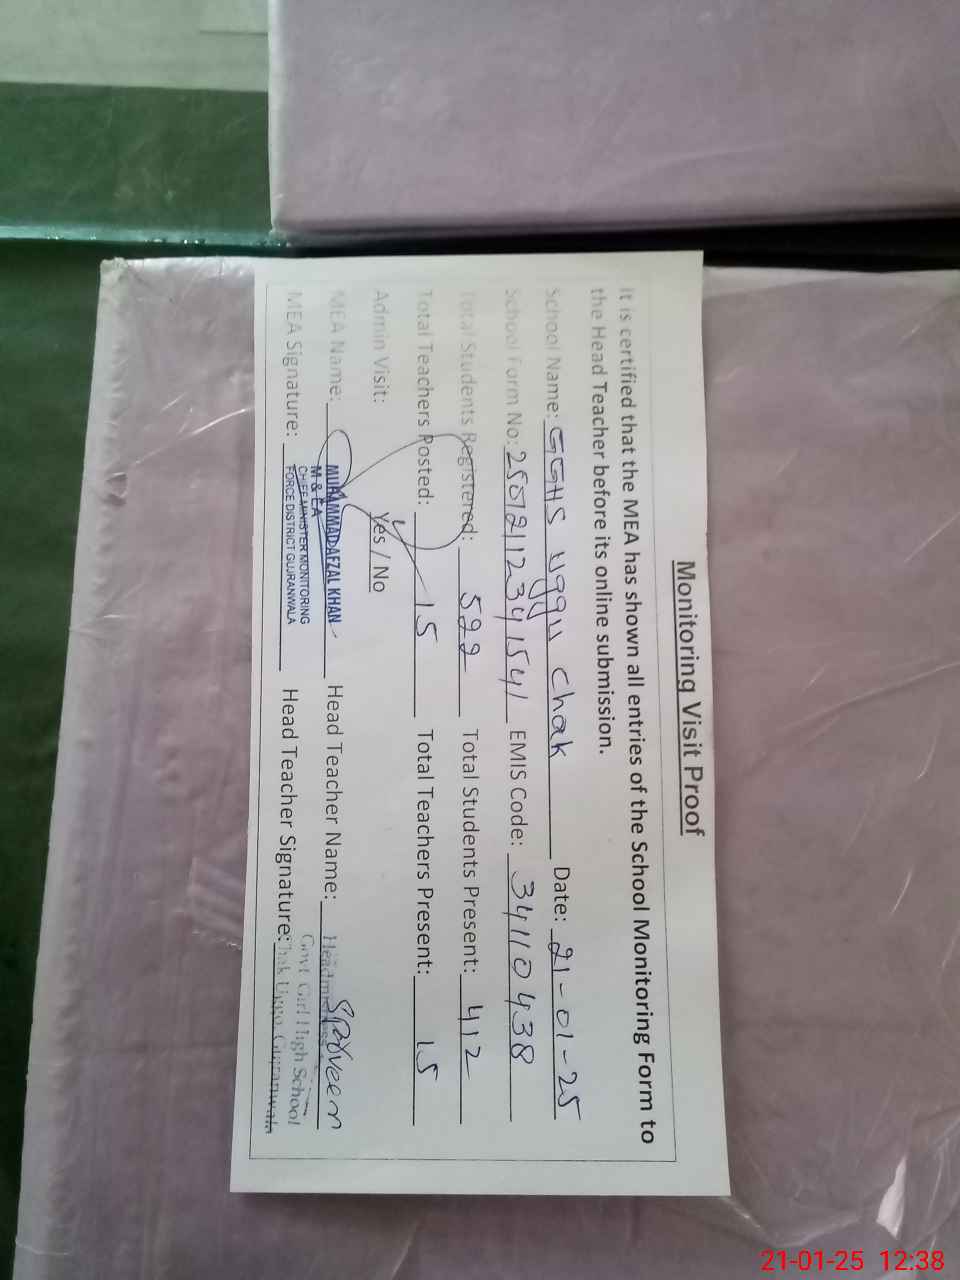 Monitoring Visit Proof
It is certified that the MEA has shown all entries of the School Monitoring Form to
the Head Teacher before its online submission.
School Name: GGHS Uggu Chak Date: 21-01-25
School Form No: 25012112341541 EMIS Code: 34110438
Total Students Registered: 599 Total Students Present: 412
Total Teachers Posted: 15 Total Teachers Present: 15
Admin Visit: Yes / No
MEA Name: MUHAMMAD AFZAL KHAN Head Teacher Name: Headmistress
M & EA
CHIEF MINISTER MONITORING Govt Girl High School
MEA Signature: FORCE DISTRICT GUJRANWALA Head Teacher Signature: Chak Uggo, Gujranwala
21-01-25 12:38